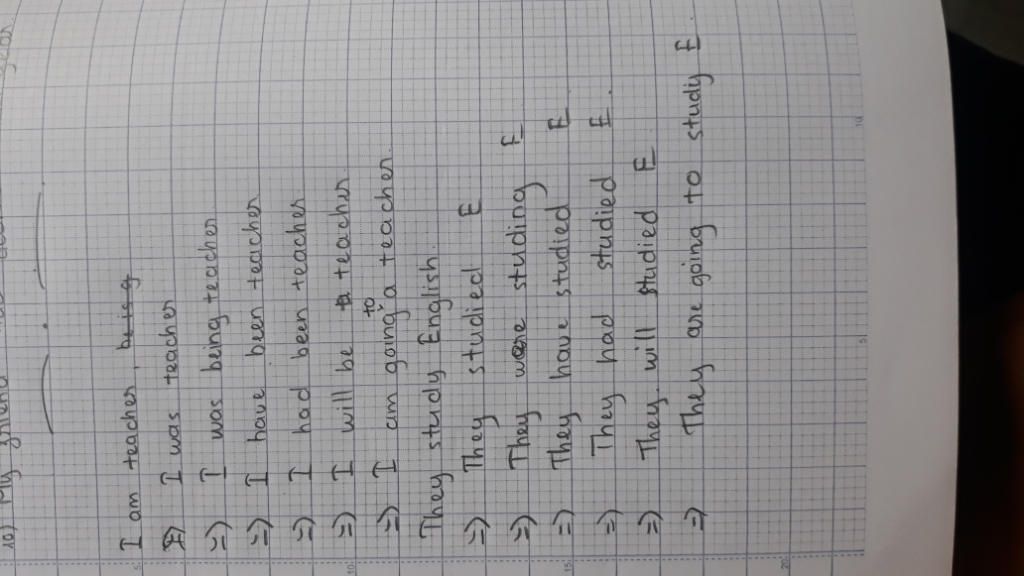 10) My friend
I am teacher. being
=) I was teacher
=) I was being teacher
=) I have been teacher
=) I had been teacher
=) I will be a teacher
=) I am going to a teacher.
They study English.
=) They studied E
=) They were studing E
=) They have studied E
=) They had studied E.
=) They will studied E
=) They are going to study E.
5
10
15
20
5
10